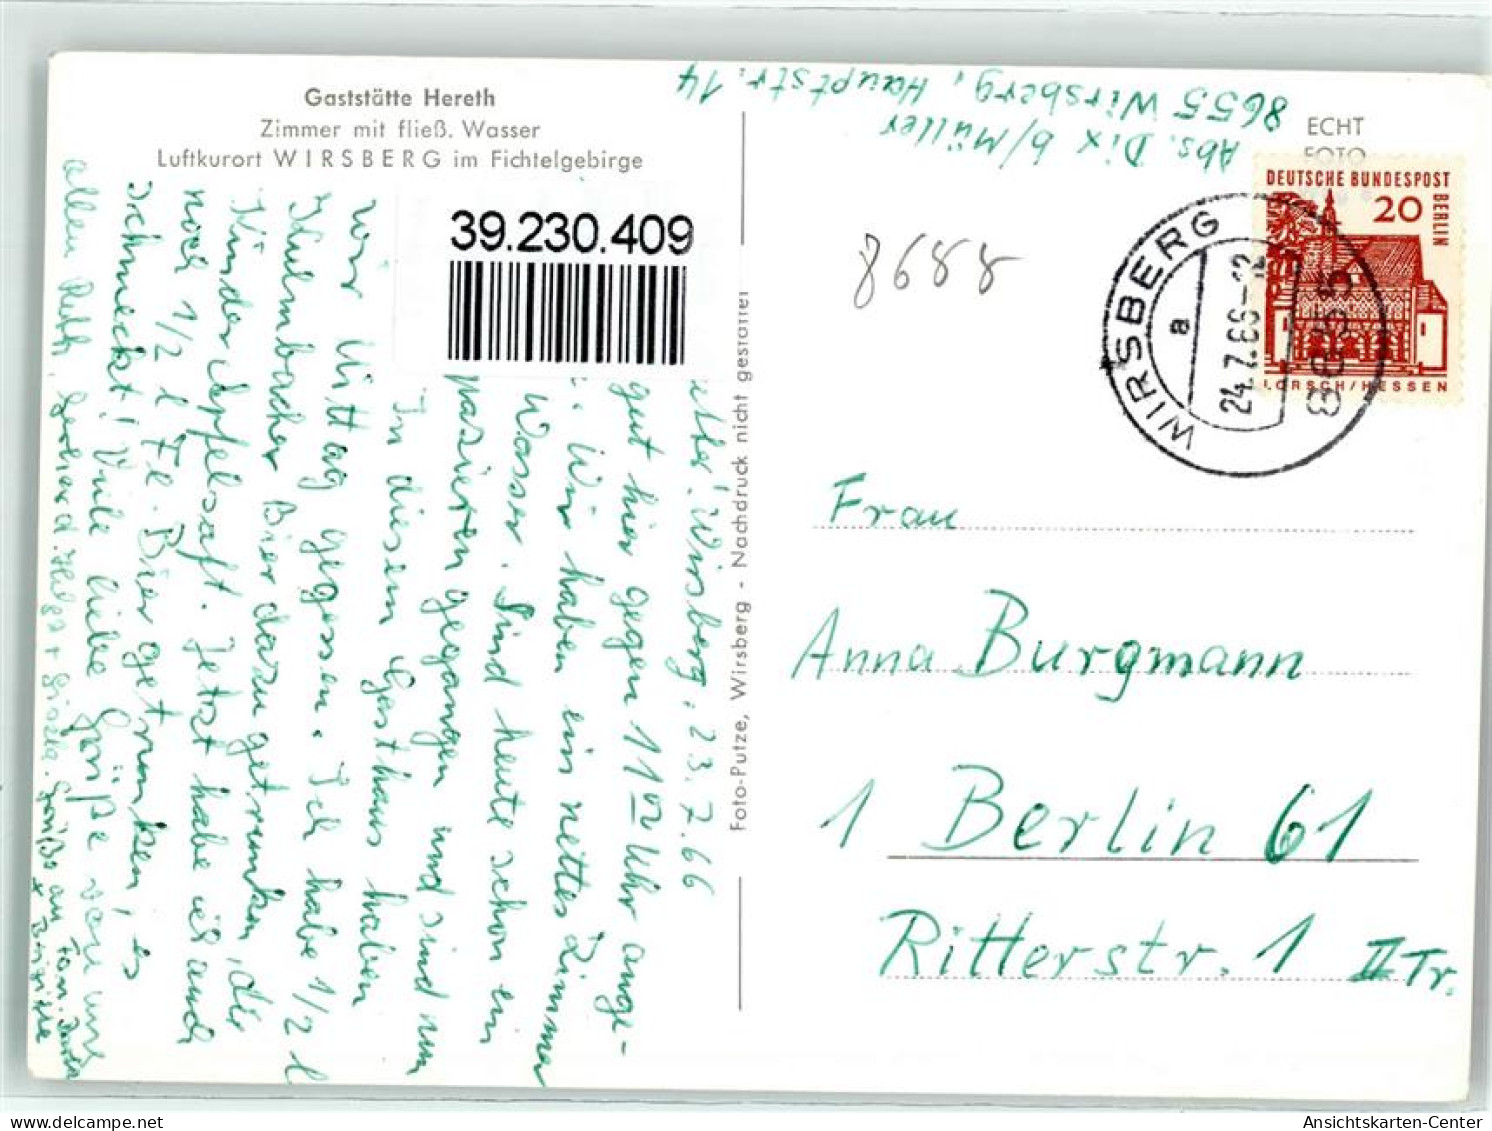 Gaststätte Hereth
Zimmer mit fließ. Wasser
Luftkurort WIRSBERG im Fichtelgebirge
39.230.409
Wirsberg, 23.7.66
gut hier gegen 11 Uhr ange-
Wir haben ein nettes Zimmer
Wasser. Sind heute schon ein
passieren gegangen und sind nun
In diesem Gasthaus haben
wir Mittag gegessen. Ich habe 1/2 l
Kulmbacher Bier dazu getrunken, die
Kinder Apfelsaft. Jetzt habe ich auch
noch 1/2 l Fl. Bier getrunken, es
schmeckt! Viele liebe Grüße von uns
allen
Grüße an Fam.
+ Brigitte
Foto-Putze, Wirsberg - Nachdruck nicht gestattet
Abs. Dix b/Müller
8655 Wirsberg, Hauptstr. 14
ECHT
FOTO
8688
DEUTSCHE BUNDESPOST
BERLIN
20
LORSCH/HESSEN
WIRSBERG
a
24.7.66-12
8655
Frau
Anna Burgmann
1 Berlin 61
Ritterstr. 1 II Tr.
Ansichtskarten-Center